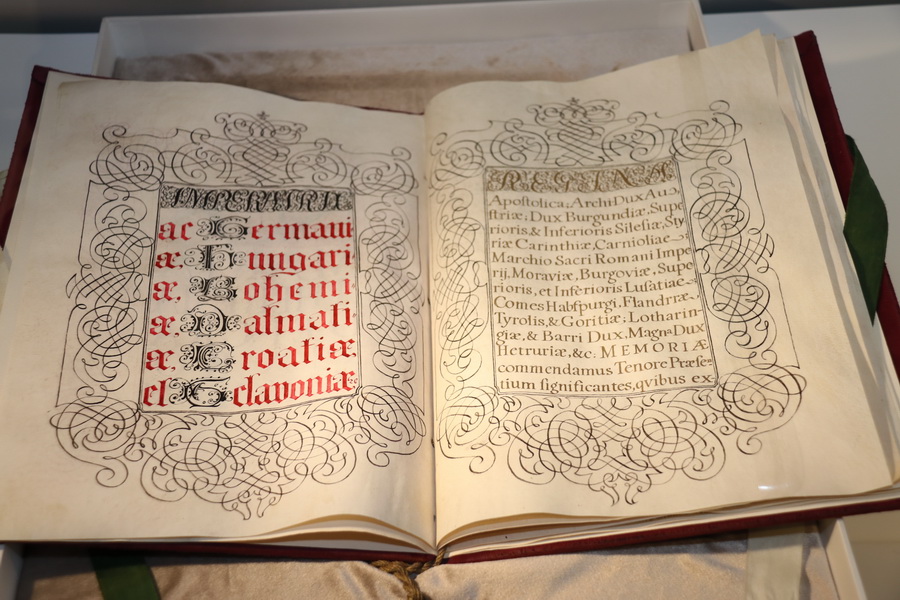 ac Germani
æ, Hungari
æ, Bohemi
æ, Dalmati
æ, Croatiæ,
et Sclavoniæ
REGINA
Apostolica; ArchiDux Au⸗
striæ; Dux Burgundiæ, Supe
rioris, & Inferioris Silesiæ, Sty
riæ Carinthiæ, Carnioliae
Marchio Sacri Romani Impe
rij, Moraviæ, Burgoviæ, Supe
rioris, et Inferioris Lusatiae
Comes Habspurgi, Flandriæ,
Tyrolis, & Goritiæ; Lotharin⸗
giæ, & Barri Dux, Magna Dux
Hetruriæ, &c: MEMORIÆ
commendamus Tenore Præsen⸗
tium significantes, qvibus ex⸗